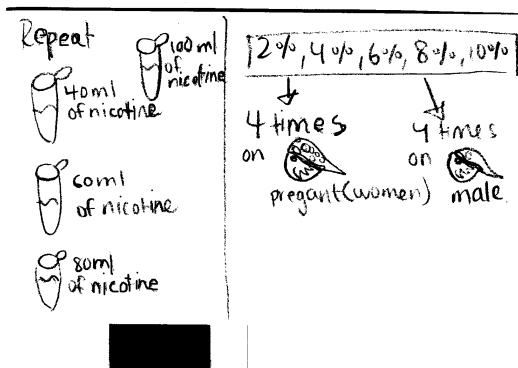 Repeat
100ml
of
nicotine
40ml
of nicotine
60ml
of nicotine
80ml
of nicotine
2%, 4%, 6%, 8%, 10%
4 times
on
pregant(women)
4 times
on
male